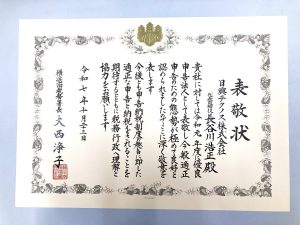 表敬状
日興テクノス株式会社
代表取締役 長谷川浩正殿
貴社に対しては令和元年度に優良
申告法人として表敬し今般適正
申告のための態勢が極めて良好と
認められましたのでここに深く敬意を
表します
今後とも申告納税制度の趣旨に即した
適正な申告と納税をされることを
期待するとともに税務行政へ理解と
協力をお願いします
令和七年十月二十三日
税務署長 大西淨子